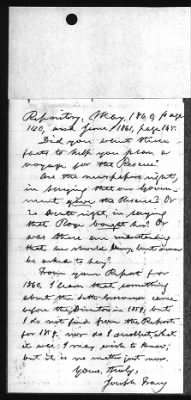 Repository, May, 1860, page
140, and June 1861, page 165.
Did you want these
facts to help you plan a
voyage for the Rescue?
Are the newspapers right,
in saying that our Govern-
ment gave the Rescue? Or
is Scott right, in saying
that Roye bought her? Or
was there an understanding
that we should buy but never
be asked to pay?
From your Report for
1860, I learn that something
about the debt
came
before the Directors in 1859; but
I do not find from the Report
for 1859, nor do I recollect, what
it was. I may wish to know;
but it is no matter just now.
Yours, truly,
Joseph Tracy